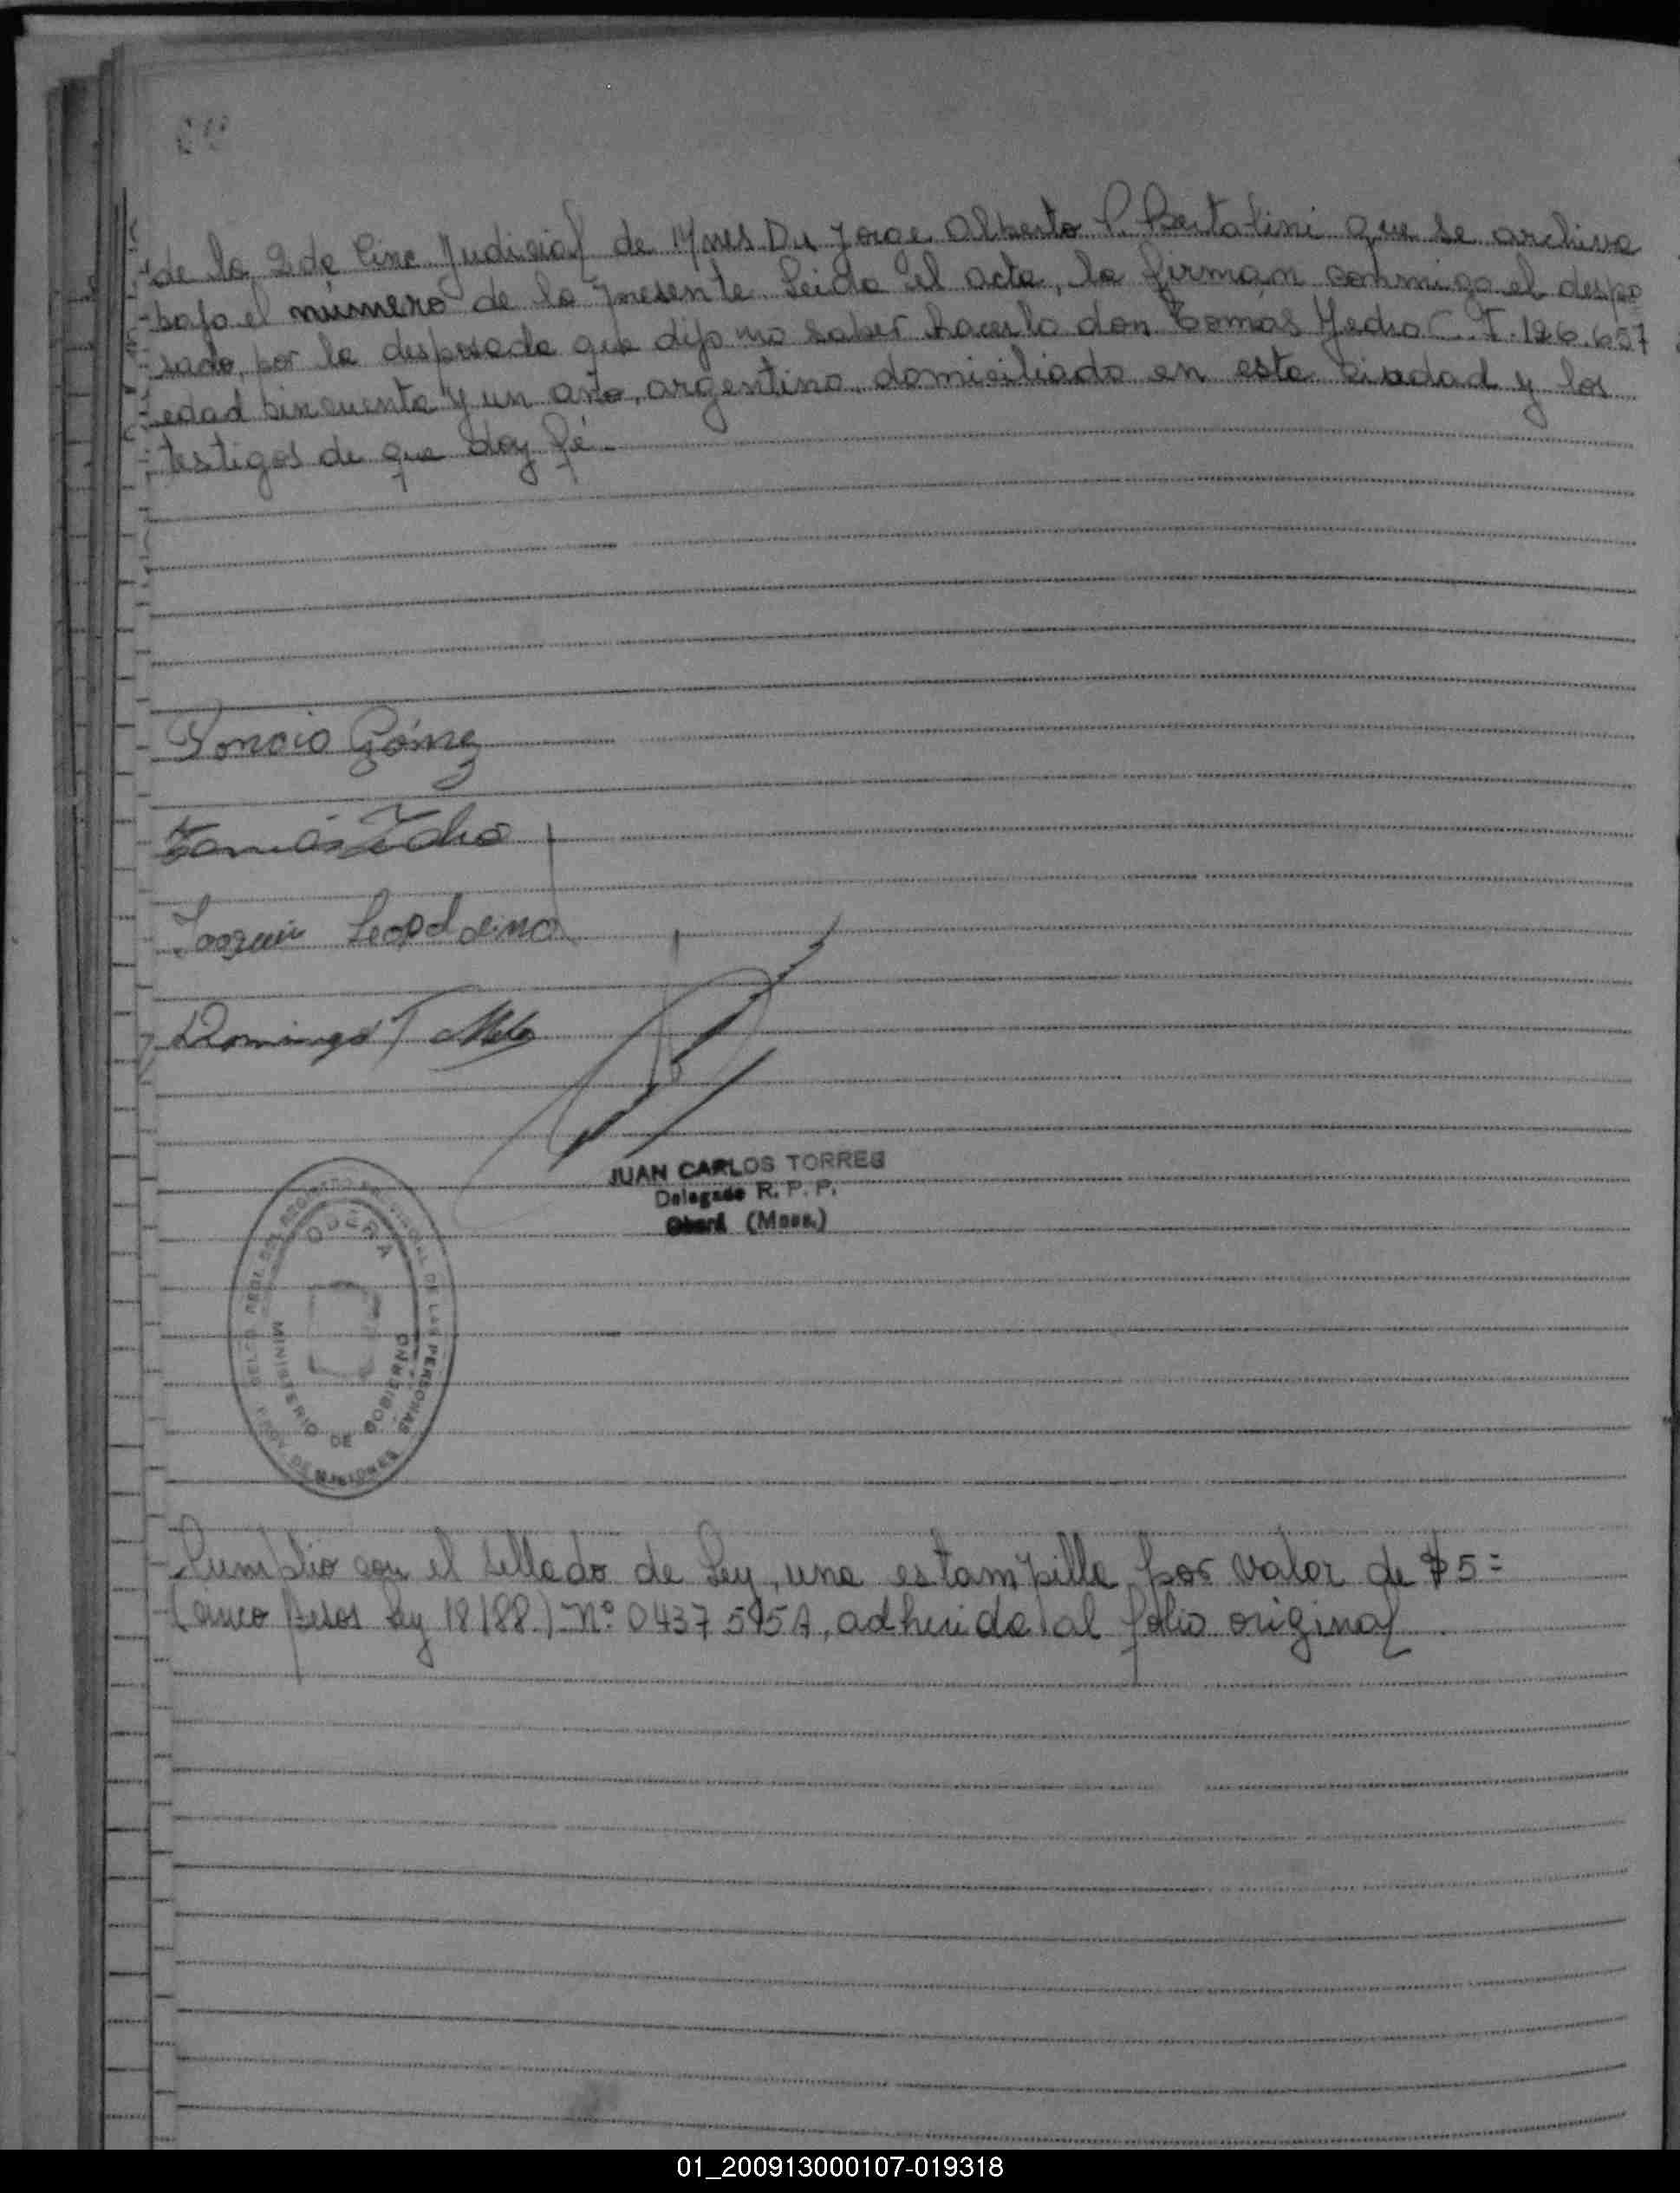 de la 2da Circ Judicial de Mnes Dr Jorge Alberto P. Bertolini que se archiva
bajo el número de la presente. Leida el acta, la firman conmigo el despo
sado, por la desposada que dijo no saber hacerlo don Tomás Yedro C. I. 126.657
edad cincuenta y un año, argentino, domiciliado en esta ciudad y los
testigos de que doy fé.
Poncio Gómez
Tomás Yedro
Joaquin Leopoldino
Domingo T Melo
JUAN CARLOS TORRES
Delegado R. P. P.
Oberá (Mnes.)
REGISTRO PROVINCIAL DE LAS PERSONAS
OBERA
MINISTERIO DE GOBIERNO
PROV. DE MISIONES
Cumplio con el sellado de Ley, una estampilla por valor de $ 5=
(cinco pesos Ley 18188.) Nº 0437595A, adherida al folio original
01_200913000107-019318